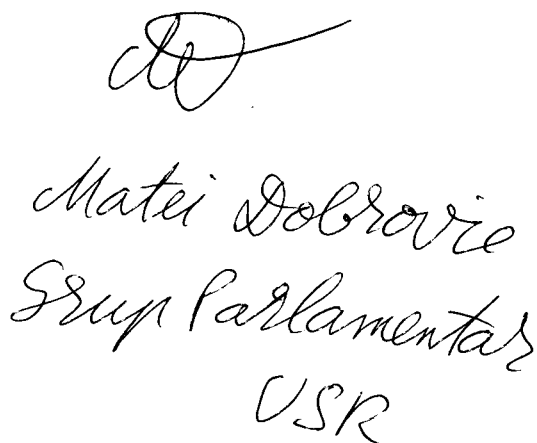 MD
Matei Dobrovie
Grup Parlamentar
USR